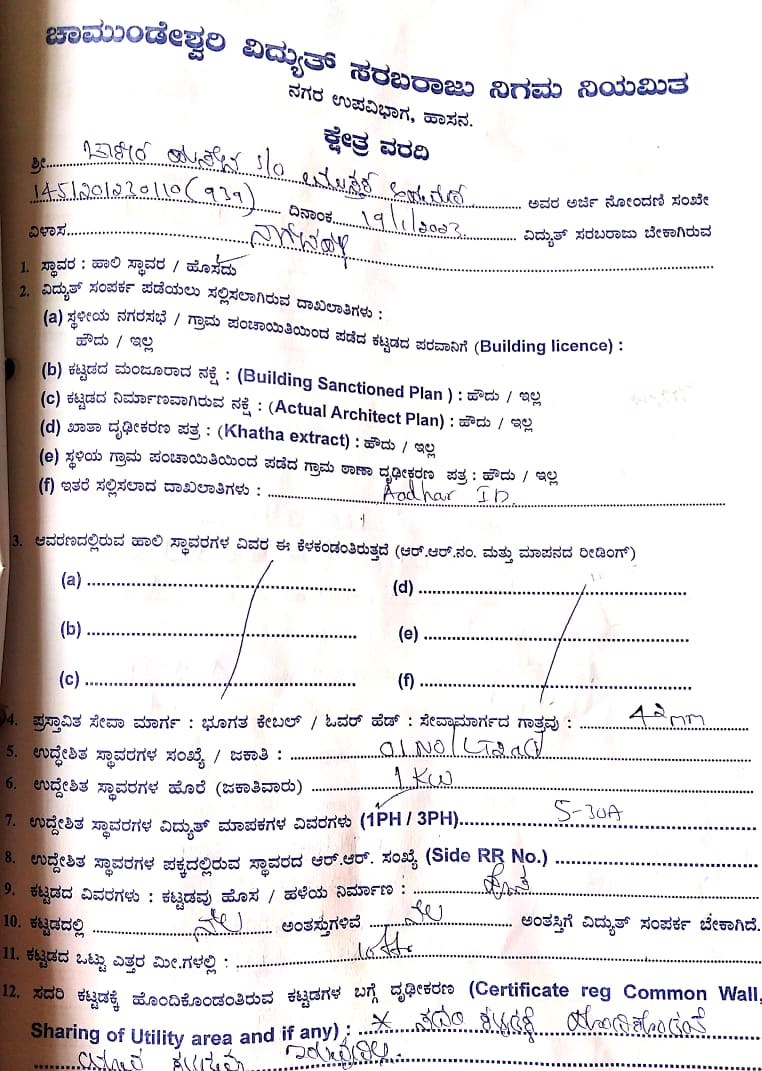 ಚಾಮುಂಡೇಶ್ವರಿ ವಿದ್ಯುತ್ ಸರಬರಾಜು ನಿಗಮ ನಿಯಮಿತ
ನಗರ ಉಪವಿಭಾಗ, ಹಾಸನ.
ಕ್ಷೇತ್ರ ವರದಿ
ಶ್ರೀ.......... S/o .......... ಅವರ ಅರ್ಜಿ ನೋಂದಣಿ ಸಂಖೇ
145/20/230110 (939) .......... ದಿನಾಂಕ.......... 19/1/2023 .......... ವಿದ್ಯುತ್ ಸರಬರಾಜು ಬೇಕಾಗಿರುವ
ವಿಳಾಸ..........
1. ಸ್ಥಾವರ : ಹಾಲಿ ಸ್ಥಾವರ / ಹೊಸದು
2. ವಿದ್ಯುತ್ ಸಂಪರ್ಕ ಪಡೆಯಲು ಸಲ್ಲಿಸಲಾಗಿರುವ ದಾಖಲಾತಿಗಳು :
(a) ಸ್ಥಳೀಯ ನಗರಸಭೆ / ಗ್ರಾಮ ಪಂಚಾಯಿತಿಯಿಂದ ಪಡೆದ ಕಟ್ಟಡದ ಪರವಾನಿಗೆ (Building licence) :
ಹೌದು / ಇಲ್ಲ
(b) ಕಟ್ಟಡದ ಮಂಜೂರಾದ ನಕ್ಷೆ : (Building Sanctioned Plan ) : ಹೌದು / ಇಲ್ಲ
(c) ಕಟ್ಟಡದ ನಿರ್ಮಾಣವಾಗಿರುವ ನಕ್ಷೆ : (Actual Architect Plan) : ಹೌದು / ಇಲ್ಲ
(d) ಖಾತಾ ದೃಢೀಕರಣ ಪತ್ರ : (Khatha extract) : ಹೌದು / ಇಲ್ಲ
(e) ಸ್ಥಳಿಯ ಗ್ರಾಮ ಪಂಚಾಯಿತಿಯಿಂದ ಪಡೆದ ಗ್ರಾಮ ಠಾಣಾ ದೃಢೀಕರಣ ಪತ್ರ : ಹೌದು / ಇಲ್ಲ
(f) ಇತರೆ ಸಲ್ಲಿಸಲಾದ ದಾಖಲಾತಿಗಳು : .......... Aadhar ID.
3. ಆವರಣದಲ್ಲಿರುವ ಹಾಲಿ ಸ್ಥಾವರಗಳ ವಿವರ ಈ ಕೆಳಕಂಡಂತಿರುತ್ತದೆ (ಆರ್.ಆರ್.ನಂ. ಮತ್ತು ಮಾಪನದ ರೀಡಿಂಗ್)
(a) .......... (d) ..........
(b) .......... (e) ..........
(c) .......... (f) ..........
4. ಪ್ರಸ್ತಾವಿತ ಸೇವಾ ಮಾರ್ಗ : ಭೂಗತ ಕೇಬಲ್ / ಓವರ್ ಹೆಡ್ : ಸೇವಾಮಾರ್ಗದ ಗಾತ್ರವು : .......... 42mm
5. ಉದ್ಧೇಶಿತ ಸ್ಥಾವರಗಳ ಸಂಖ್ಯೆ / ಜಕಾತಿ : .......... 01 NO /
6. ಉದ್ದೇಶಿತ ಸ್ಥಾವರಗಳ ಹೊರೆ (ಜಕಾತಿವಾರು) .......... 1 KW
7. ಉದ್ದೇಶಿತ ಸ್ಥಾವರಗಳ ವಿದ್ಯುತ್ ಮಾಪಕಗಳ ವಿವರಗಳು (1PH / 3PH).......... 5-30A
8. ಉದ್ದೇಶಿತ ಸ್ಥಾವರಗಳ ಪಕ್ಕದಲ್ಲಿರುವ ಸ್ಥಾವರದ ಆರ್.ಆರ್. ಸಂಖ್ಯೆ (Side RR No.) ..........
9. ಕಟ್ಟಡದ ವಿವರಗಳು : ಕಟ್ಟಡವು ಹೊಸ / ಹಳೆಯ ನಿರ್ಮಾಣ : ..........
10. ಕಟ್ಟಡದಲ್ಲಿ .......... ನೆಲ .......... ಅಂತಸ್ತುಗಳಿವೆ .......... ನೆಲ .......... ಅಂತಸ್ತಿಗೆ ವಿದ್ಯುತ್ ಸಂಪರ್ಕ ಬೇಕಾಗಿದೆ.
11. ಕಟ್ಟಡದ ಒಟ್ಟು ಎತ್ತರ ಮೀ.ಗಳಲ್ಲಿ : ..........
12. ಸದರಿ ಕಟ್ಟಡಕ್ಕೆ ಹೊಂದಿಕೊಂಡಂತಿರುವ ಕಟ್ಟಡಗಳ ಬಗ್ಗೆ ದೃಢೀಕರಣ (Certificate reg Common Wall,
Sharing of Utility area and if any) :